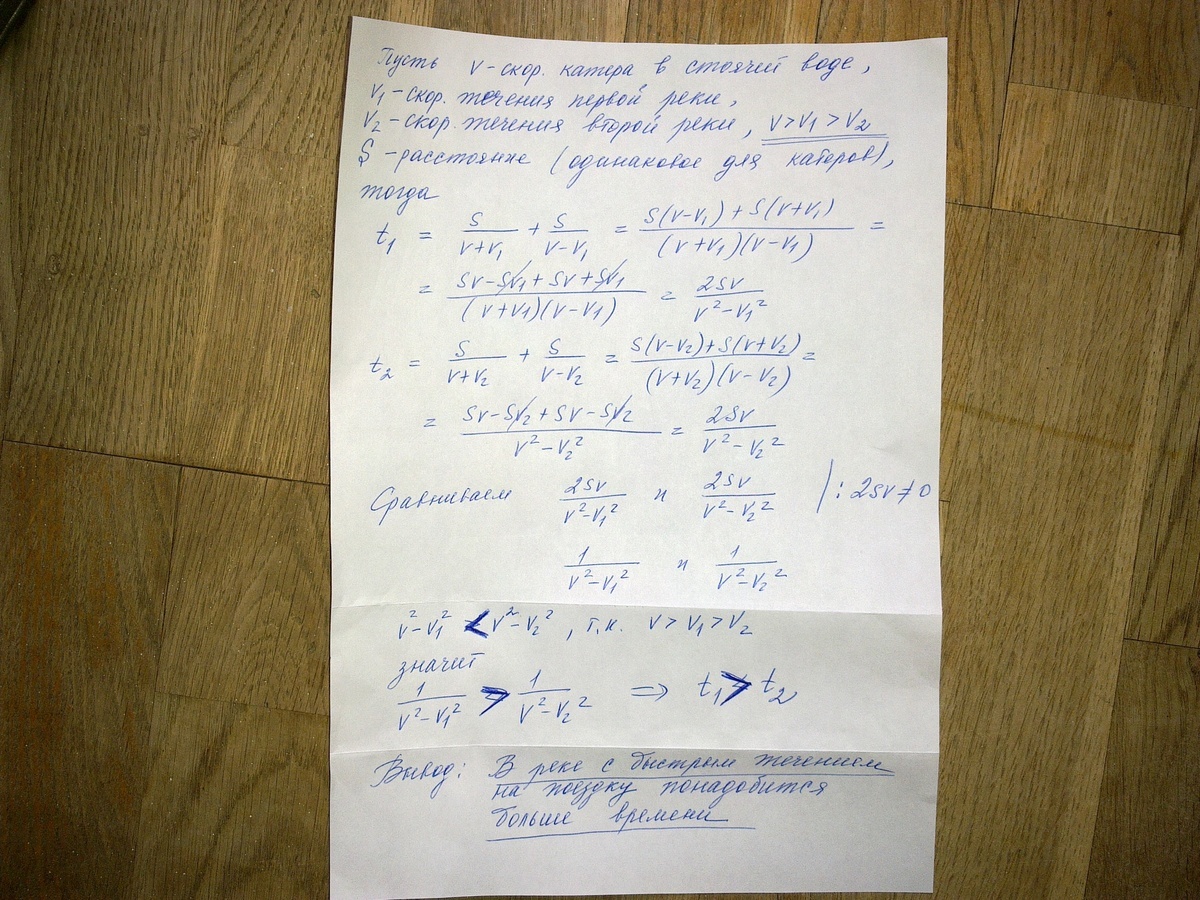 Пусть v-скор. катера в стоячей воде,
v₁-скор. течения первой реки,
v₂-скор. течения второй реки, v>v₁>v₂
S-расстояние (одинаковое для катеров),
тогда
t₁ = S/(v+v₁) + S/(v-v₁) = (S(v-v₁)+S(v+v₁))/((v+v₁)(v-v₁)) =
= (Sv-Sv₁+Sv+Sv₁)/((v+v₁)(v-v₁)) = 2Sv/(v²-v₁²)
t₂ = S/(v+v₂) + S/(v-v₂) = (S(v-v₂)+S(v+v₂))/((v+v₂)(v-v₂)) =
= (Sv-Sv₂+Sv-Sv₂)/(v²-v₂²) = 2Sv/(v²-v₂²)
Сравниваем 2Sv/(v²-v₁²) и 2Sv/(v²-v₂²) |:2Sv≠0
1/(v²-v₁²) и 1/(v²-v₂²)
v²-v₁² < v²-v₂², т.к. v>v₁>v₂
значит
1/(v²-v₁²) > 1/(v²-v₂²) ⇒ t₁ > t₂
Вывод: В реке с быстрым течением
на поездку понадобится
больше времени